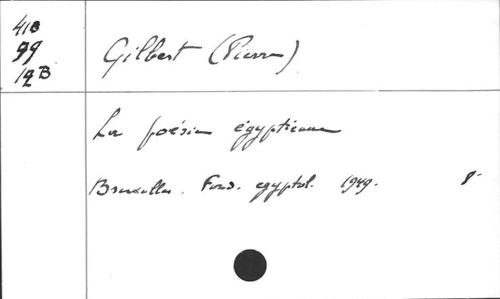 418
99
12B
Gilbert (Pierre)
La poésie égyptienne
Bruxelles. Fond. egyptol. 1949. 8°